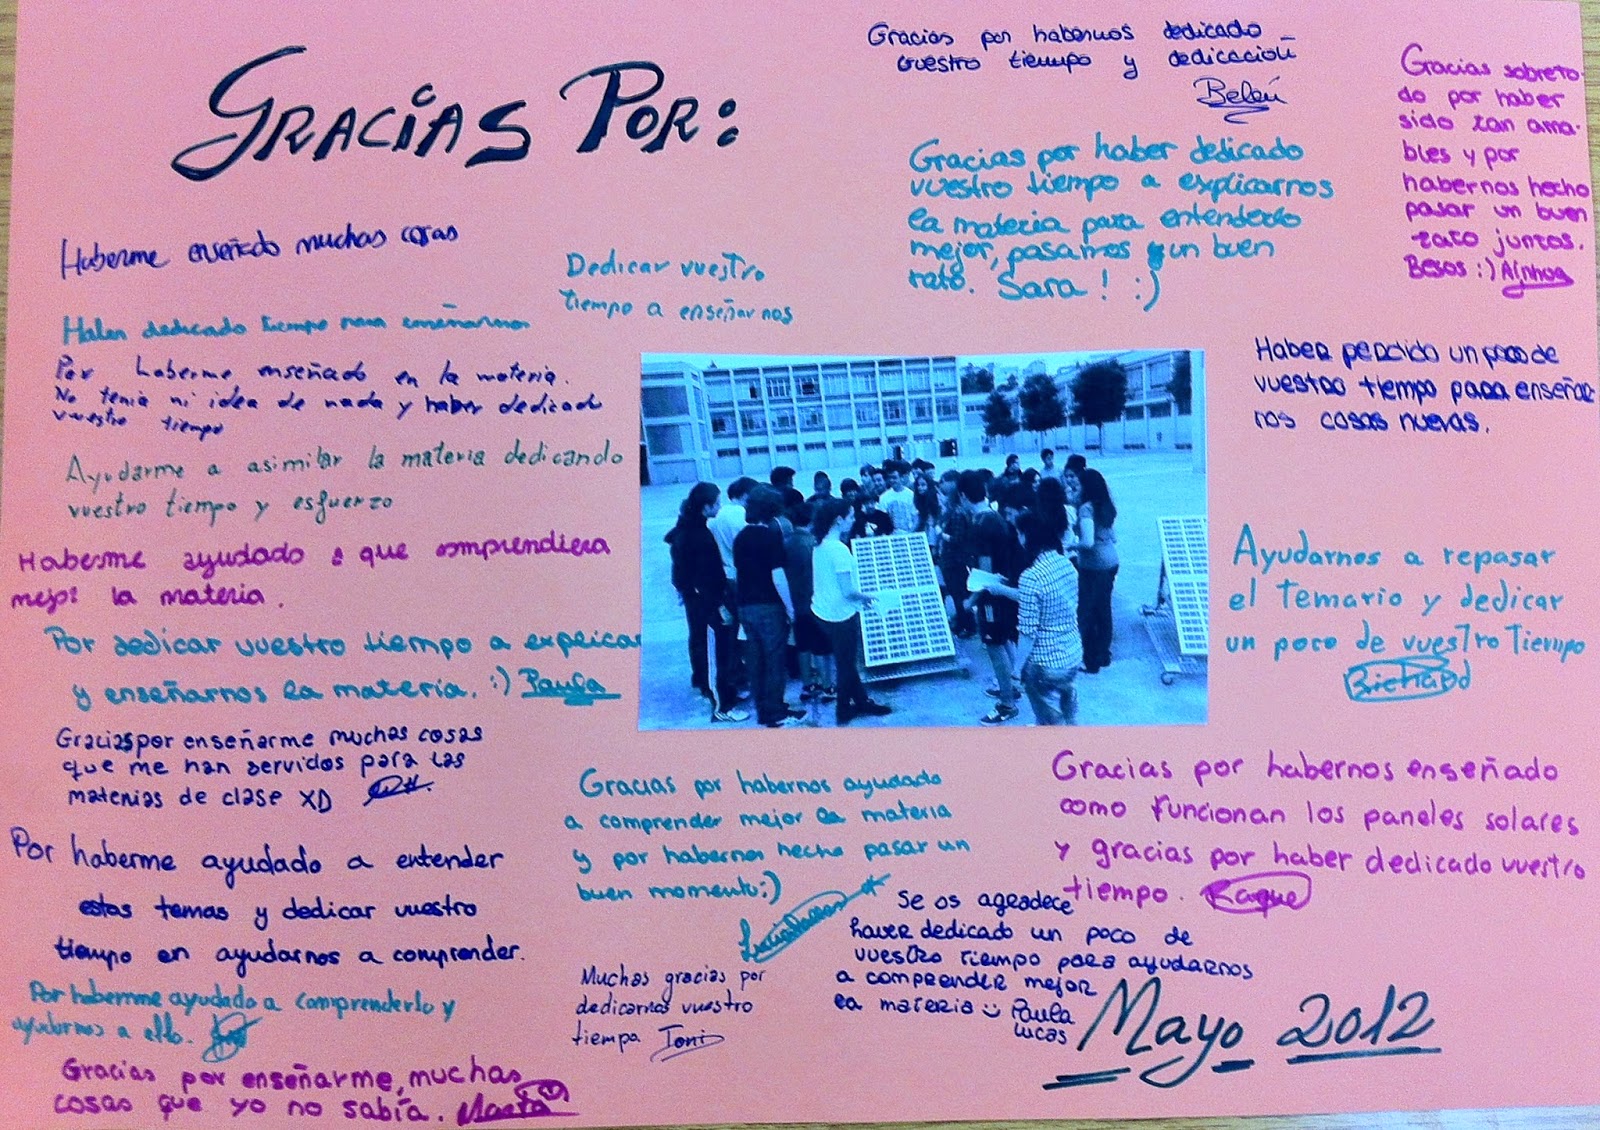 GRACIAS POR:
Haberme enseñado muchas cosas
Haber dedicado tiempo para enseñarnos
Por haberme enseñado en la materia.
No tenia ni idea de nada y haber dedicado
vuestro tiempo
Ayudarme a asimilar la materia dedicando
vuestro tiempo y esfuerzo
Haberme ayudado a que comprendiera
mejor la materia.
Por dedicar vuestro tiempo a explicar
y enseñarnos la materia. :) Paula
Gracias por enseñarme muchas cosas
que me han servidos para las
materias de clase XD
Por haberme ayudado a entender
estos temas y dedicar vuestro
tiempo en ayudarnos a comprender.
Por habernme ayudado a comprenderlo y
ayudarnos a ello.
Gracias por enseñarme, muchas
cosas que yo no sabía. Marta
Dedicar vuestro
tiempo a enseñarnos
Gracias por habernos dedicado
vuestro tiempo y dedicación
Belén
Gracias por haber dedicado
vuestro tiempo a explicarnos
la materia para entenderlo
mejor, pasamos un buen
rato. Sara ! :)
Gracias sobreto-
do por haber
sido tan ama-
bles y por
habernos hecho
pasar un buen
rato juntos.
Besos :) Ainhoa
Haber perdido un poco de
vuestro tiempo para enseñar
nos cosas nuevas.
Ayudarnos a repasar
el temario y dedicar
un poco de vuestro Tiempo
Richard
Gracias por habernos enseñado
como funcionan los paneles solares
y gracias por haber dedicado vuestro
tiempo. Raque
Gracias por habernos ayudado
a comprender mejor la materia
y por habernos hecho pasar un
buen momento:)
Muchas gracias por
dedicarnos vuestro
tiempo Toni
Se os agradece
haver dedicado un poco de
vuestro tiempo para ayudarnos
a comprender mejor
la materia Paula
Lucas
Mayo 2012